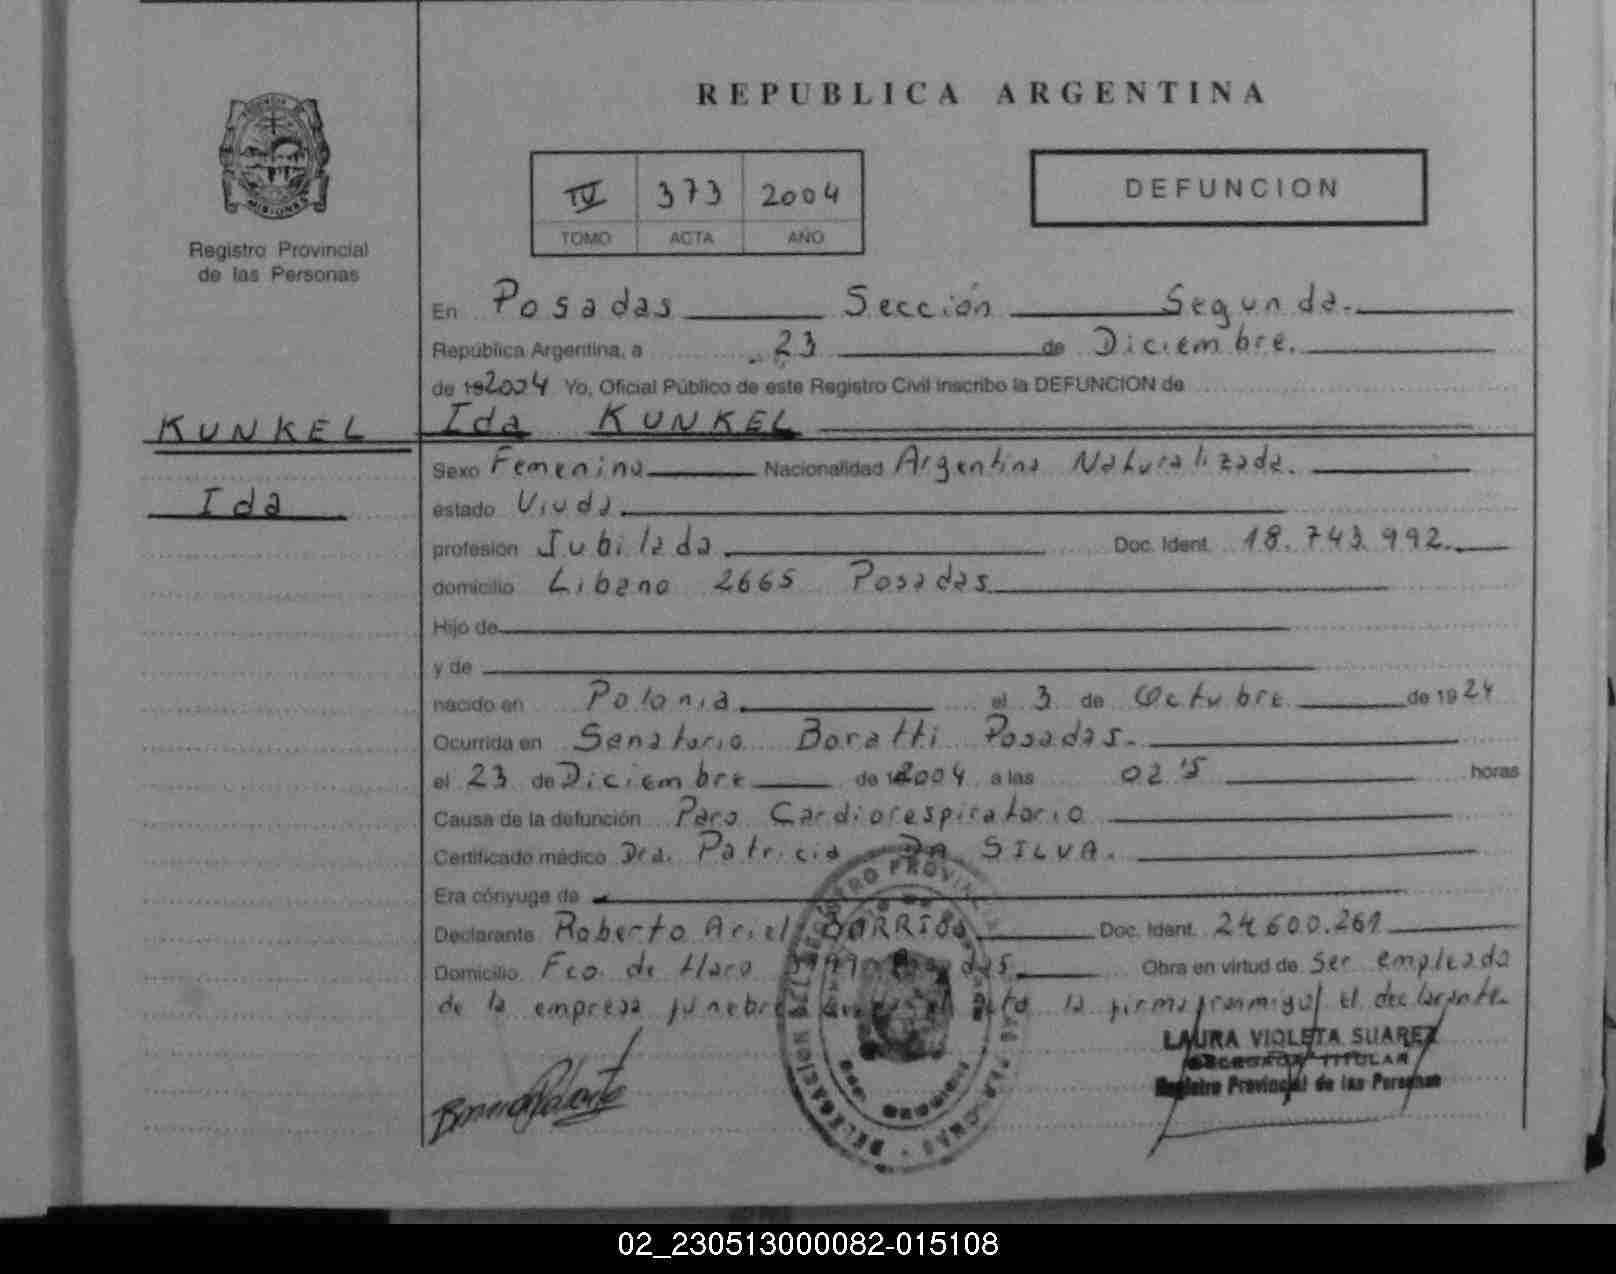 REPUBLICA ARGENTINA
IV 373 2004
TOMO ACTA AÑO
DEFUNCION
MISIONES
Registro Provincial
de las Personas
En Posadas Sección Segunda.
República Argentina, a 23 de Diciembre.
de 192004 Yo, Oficial Público de este Registro Civil inscribo la DEFUNCION de
KUNKEL
Ida
Ida KUNKEL
Sexo Femenino Nacionalidad Argentina Naturalizada.
estado Viuda
profesión Jubilada Doc. Ident. 18.743.992.
domicilio Libano 2665 Posadas
Hijo de
y de
nacido en Polonia el 3 de Octubre de 1924
Ocurrida en Sanatorio Boratti Posadas.
el 23 de Diciembre de 2004 a las 02'5 horas
Causa de la defunción Paro Cardiorespiratorio
Certificado médico Dra. Patricia DA SILVA.
Era cónyuge de
Declarante Roberto Ariel BARRIOS Doc. Ident. 24.600.261
Domicilio Fco. de Haro Obra en virtud de ser empleado
de la empresa funebre la firma el declarante.
LAURA VIOLETA SUAREZ
TITULAR
Registro Provincial de las Personas
02_230513000082-015108